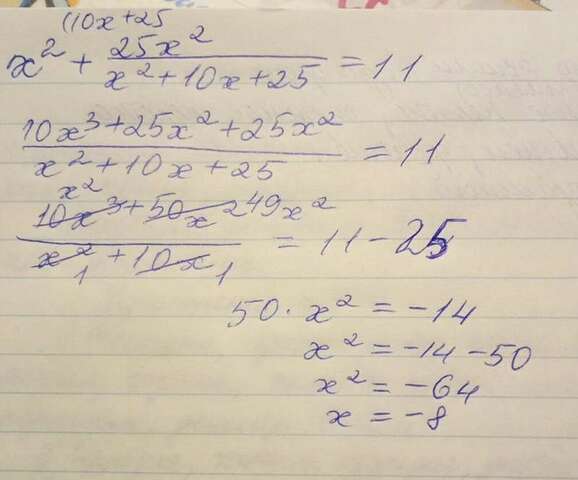 (10x+25
x² + 25x² / x²+10x+25 = 11
10x³+25x²+25x² / x²+10x+25 = 11
x²
10x³+50x² 49x² / x²+10x = 11-25
1 1
50 · x² = -14
x² = -14-50
x² = -64
x = -8